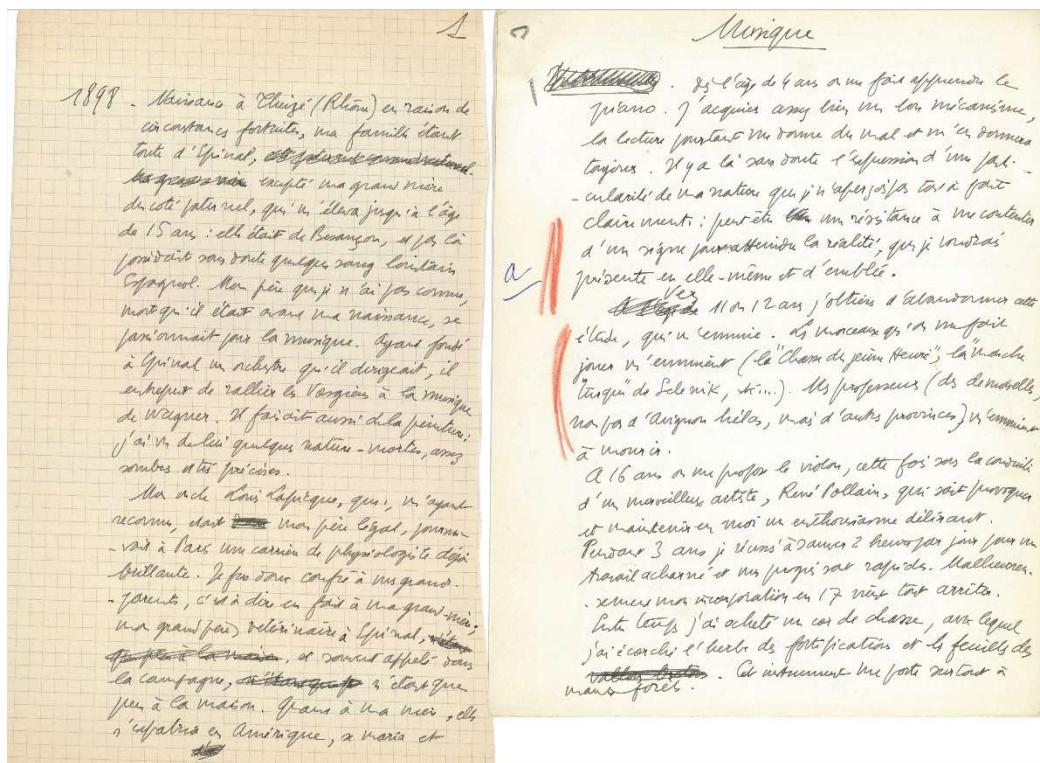 1
1898 - Naissance à Theizé (Rhône) en raison de
circonstances fortuites, ma famille étant
toute d'Epinal,
excepté ma grand mère
du coté paternel, qui m'éleva jusqu'à l'âge
de 15 ans : elle était de Besançon, et par là
possédait sans doute quelque sang lointain
Espagnol. Mon père que je n'ai pas connu,
mort qu'il était avant ma naissance, se
passionnait pour la musique. Ayant fondé
à Epinal un orchestre qu'il dirigeait, il
entreprit de rallier les Vosgiens à la musique
de Wagner. Il faisait aussi de la peinture :
j'ai vu de lui quelques nature-mortes, assez
sombres et très précises.
Mon oncle Louis Lapicque, qui, m'ayant
reconnu, était mon père légal, poursui-
-vait à Paris une carrière de physiologiste déjà
brillante. Je fus donc confié à mes grand-
-parents, c'est à dire en fait à ma grand-mère ;
mon grand père, vétérinaire à Epinal,
et souvent appelé dans
la campagne, n'était que
peu à la maison. Quant à ma mère, elle
s'expatria en Amérique, se maria et
Musique
Dès l'âge de 4 ans on me fait apprendre le
piano. J'acquiers assez bien un bon mécanisme,
la lecture pourtant me donne du mal et m'en donnera
toujours. Il y a là sans doute l'expression d'une parti-
-cularité de ma nature que je n'aperçois pas tout à fait
clairement : peut être une résistance à me contenter
d'un signe pour atteindre la réalité, que je voudrais
présente en elle-même et d'emblée.
a
Vers
11 ou 12 ans j'obtiens d'abandonner cette
étude, qui m'ennuie. Les morceaux qu'on me fait
jouer m'ennuient (la "Chasse du jeune Henri", la "marche
turque" de Selenik, etc...). Mes professeurs (des demoiselles,
non pas d'Avignon hélas, mais d'autres provinces) m'ennuient
à mourir.
A 16 ans on me propose le violon, cette fois sous la conduite
d'un merveilleux artiste, René Pollain, qui sait provoquer
et maintenir en moi un enthousiasme délirant.
Pendant 3 ans je réussis à sauver 2 heures par jour pour un
travail acharné et mes progrès sont rapides. Malheureu-
-sement mon incorporation en 17 vient tout arrêter.
Entre temps j'ai acheté un cor de chasse, avec lequel
j'ai écorché l'herbe des fortifications et les feuilles des
Cet instrument me porte surtout à
forêts.